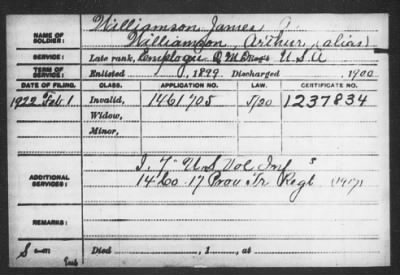 Williamson, James A.
NAME OF SOLDIER: Williamson, Arthur, (alias)
SERVICE: Late rank, Employee Q M Dept U.S.A
TERM OF SERVICE: Enlisted , 1899. Discharged , 1900
DATE OF FILING. CLASS. APPLICATION NO. LAW. CERTIFICATE NO.
1922 Feb 1 Invalid, 1461705 5/20 1237834
Widow,
Minor,
ADDITIONAL SERVICES: U.S. Vol Inf
14 Co 17 Prov Tr Regt (1917)
REMARKS:
Died , 1 , at